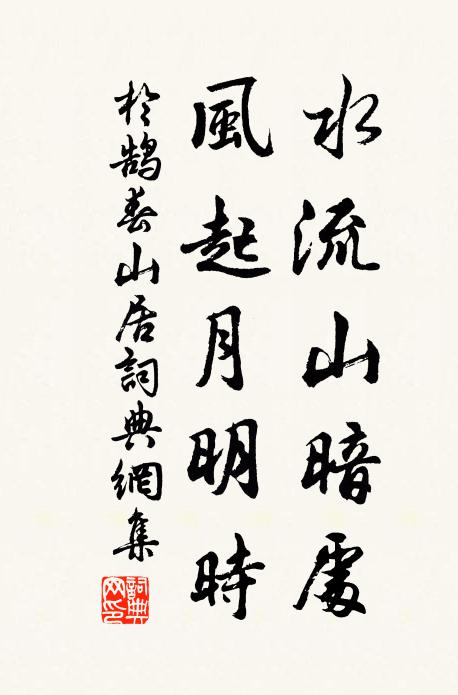 水流山暗處
風起月明時
於鵠春山居詞典網集
詞典網印